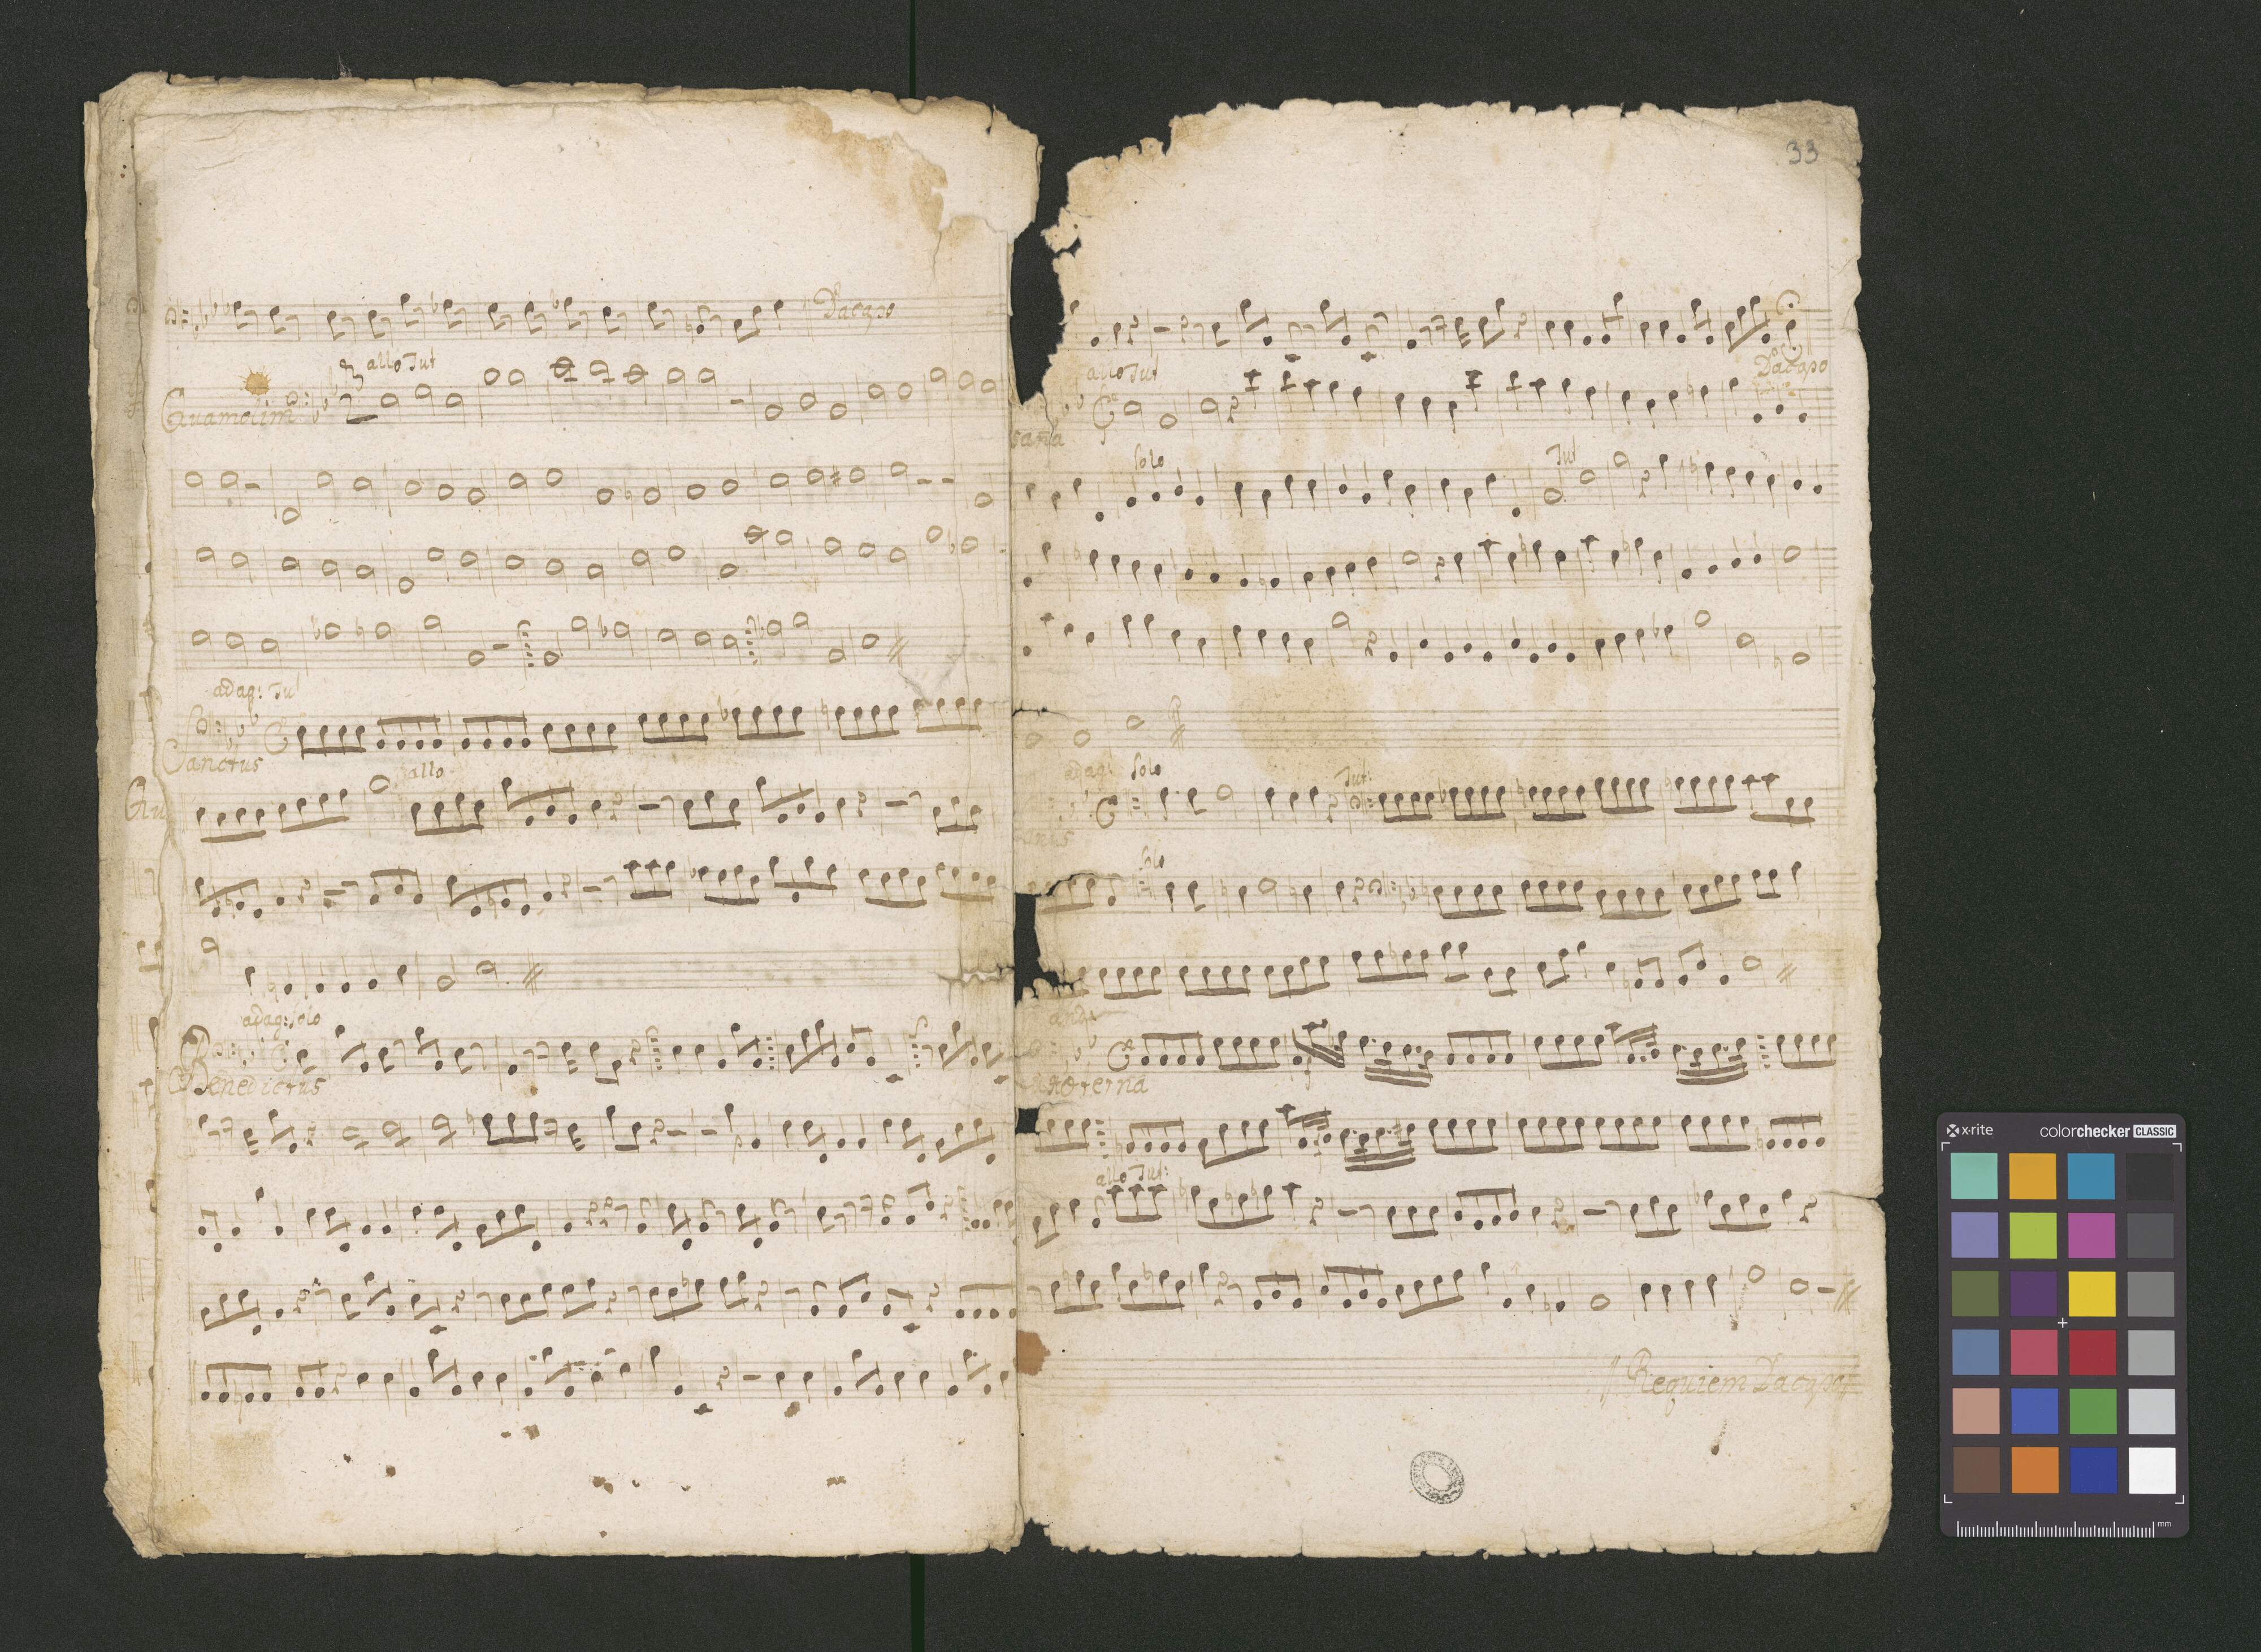 Dacapo
allo Tut
Quamolim
adag: Tut
Sanctus
allo
adag: solo
Benedictus
33
Dacapo
allo Tut
sana
solo
Tut
adag: Solo
Tut:
Solo
and
aeterna
allo Tut:
Requiem Dacapo
x-rite
colorchecker CLASSIC
mm